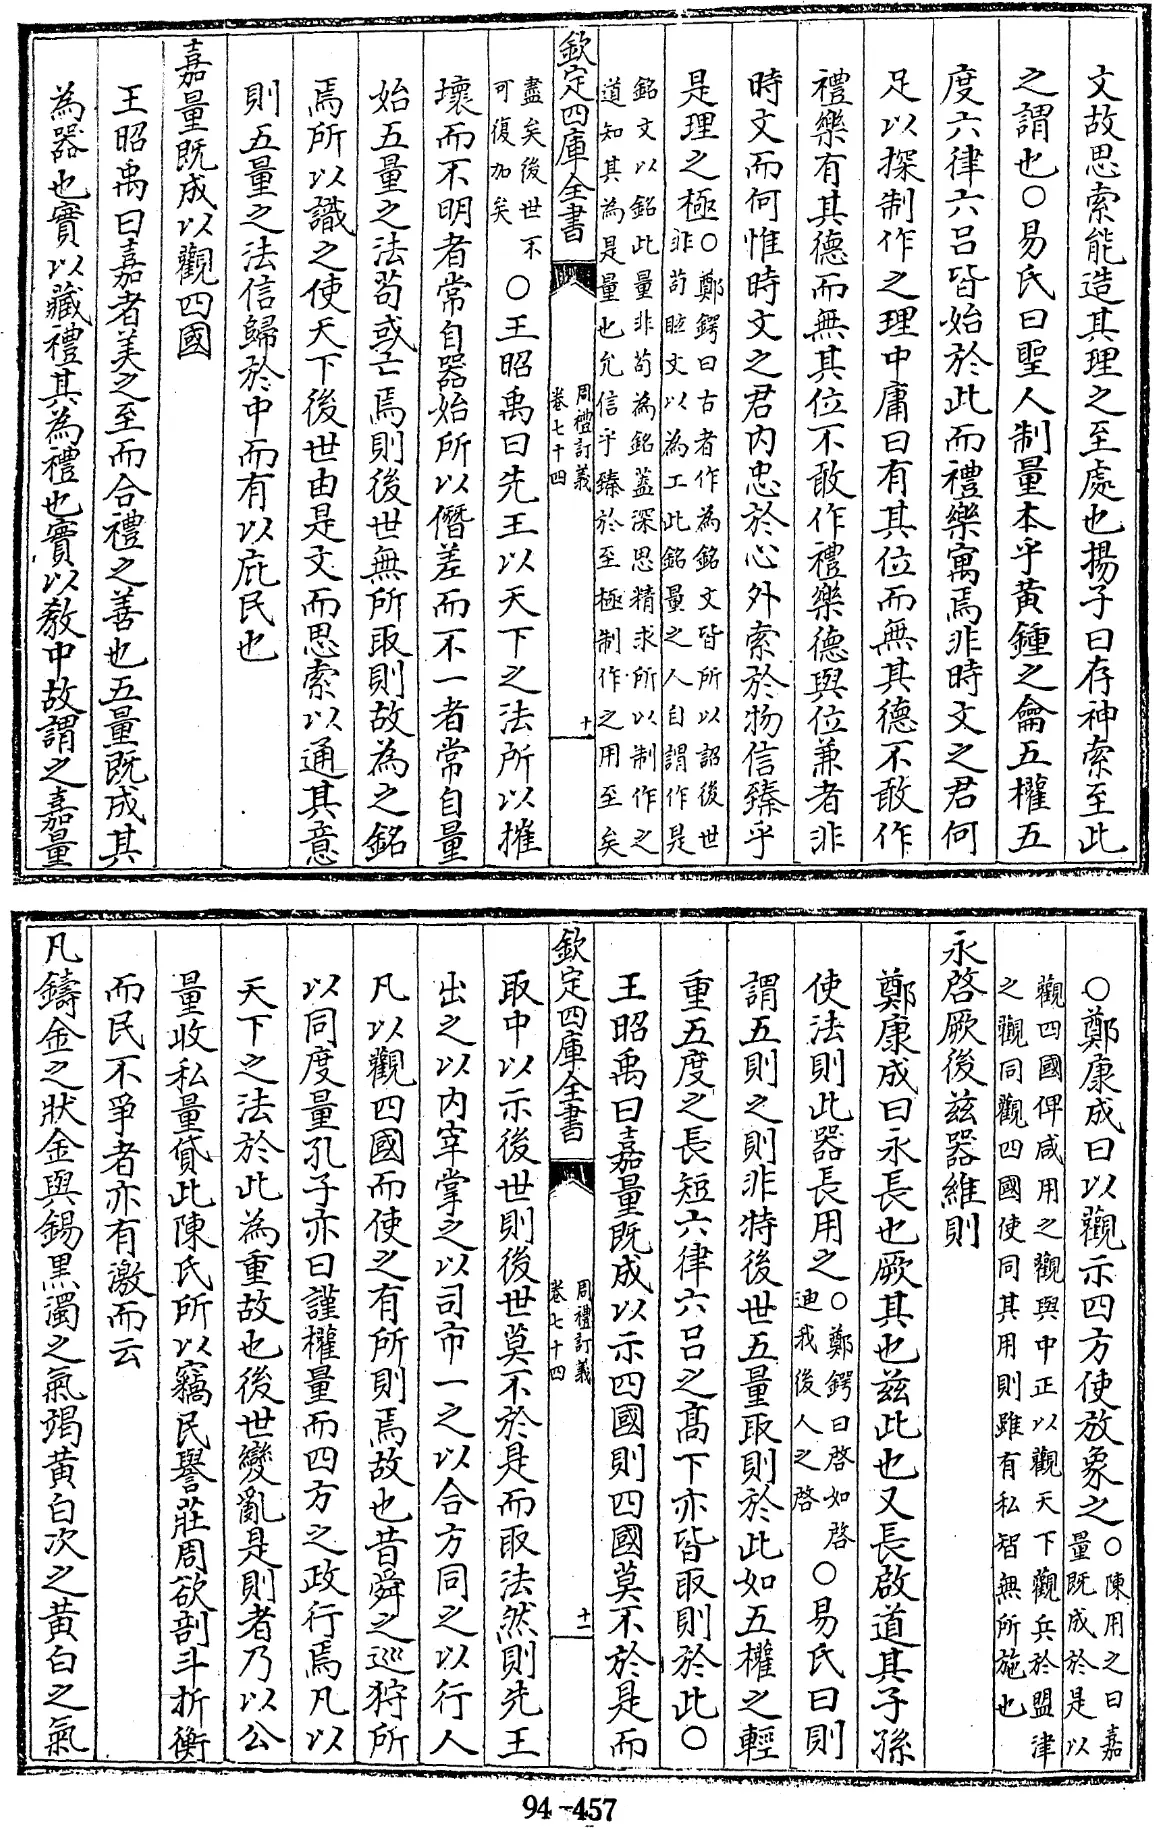 文故思索能造其理之至處也揚子曰存神索至此
之謂也○易氏曰聖人制量本乎黄鍾之龠五權五
度六律六呂皆始於此而禮樂寓焉非時文之君何
足以探制作之理中庸曰有其位而無其德不敢作
禮樂有其德而無其位不敢作禮樂德與位兼者非
時文而何惟時文之君内忠於心外索於物信臻乎
是理之極○鄭鍔曰古者作為銘文皆所以詔後世
非苟眩文以為工此銘量之人自謂作是
銘文以銘此量非苟為銘蓋深思精求所以制作之
道知其為是量也允信乎臻於至極制作之用至矣
欽定四庫全書
周禮訂義
卷七十四
十
盡矣後世不
可復加矣
○王昭禹曰先王以天下之法所以摧
壞而不明者常自器始所以僭差而不一者常自量
始五量之法苟或亡焉則後世無所取則故為之銘
焉所以識之使天下後世由是文而思索以通其意
則五量之法信歸於中而有以庇民也
嘉量既成以觀四國
王昭禹曰嘉者美之至而合禮之善也五量既成其
為器也實以藏禮其為禮也實以教中故謂之嘉量
○鄭康成曰以觀示四方使放象之○陳用之曰嘉
量既成於是以
觀四國俾咸用之觀與中正以觀天下觀兵於盟津
之觀同觀四國使同其用則雖有私智無所施也
永啓厥後兹器維則
鄭康成曰永長也厥其也兹此也又長啟道其子孫
使法則此器長用之○鄭鍔曰啓如啓
迪我後人之啓
○易氏曰則
謂五則之則非特後世五量取則於此如五權之輕
重五度之長短六律六呂之髙下亦皆取則於此○
王昭禹曰嘉量既成以示四國則四國莫不於是而
欽定四庫全書
周禮訂義
卷七十四
十一
取中以示後世則後世莫不於是而取法然則先王
出之以内宰掌之以司市一之以合方同之以行人
凡以觀四國而使之有所則焉故也昔舜之巡狩所
以同度量孔子亦曰謹權量而四方之政行焉凡以
天下之法於此為重故也後世變亂是則者乃以公
量收私量貸此陳氏所以竊民譽莊周欲剖斗折衡
而民不爭者亦有激而云
凡鑄金之狀金與錫黒濁之氣竭黄白次之黄白之氣
94-457